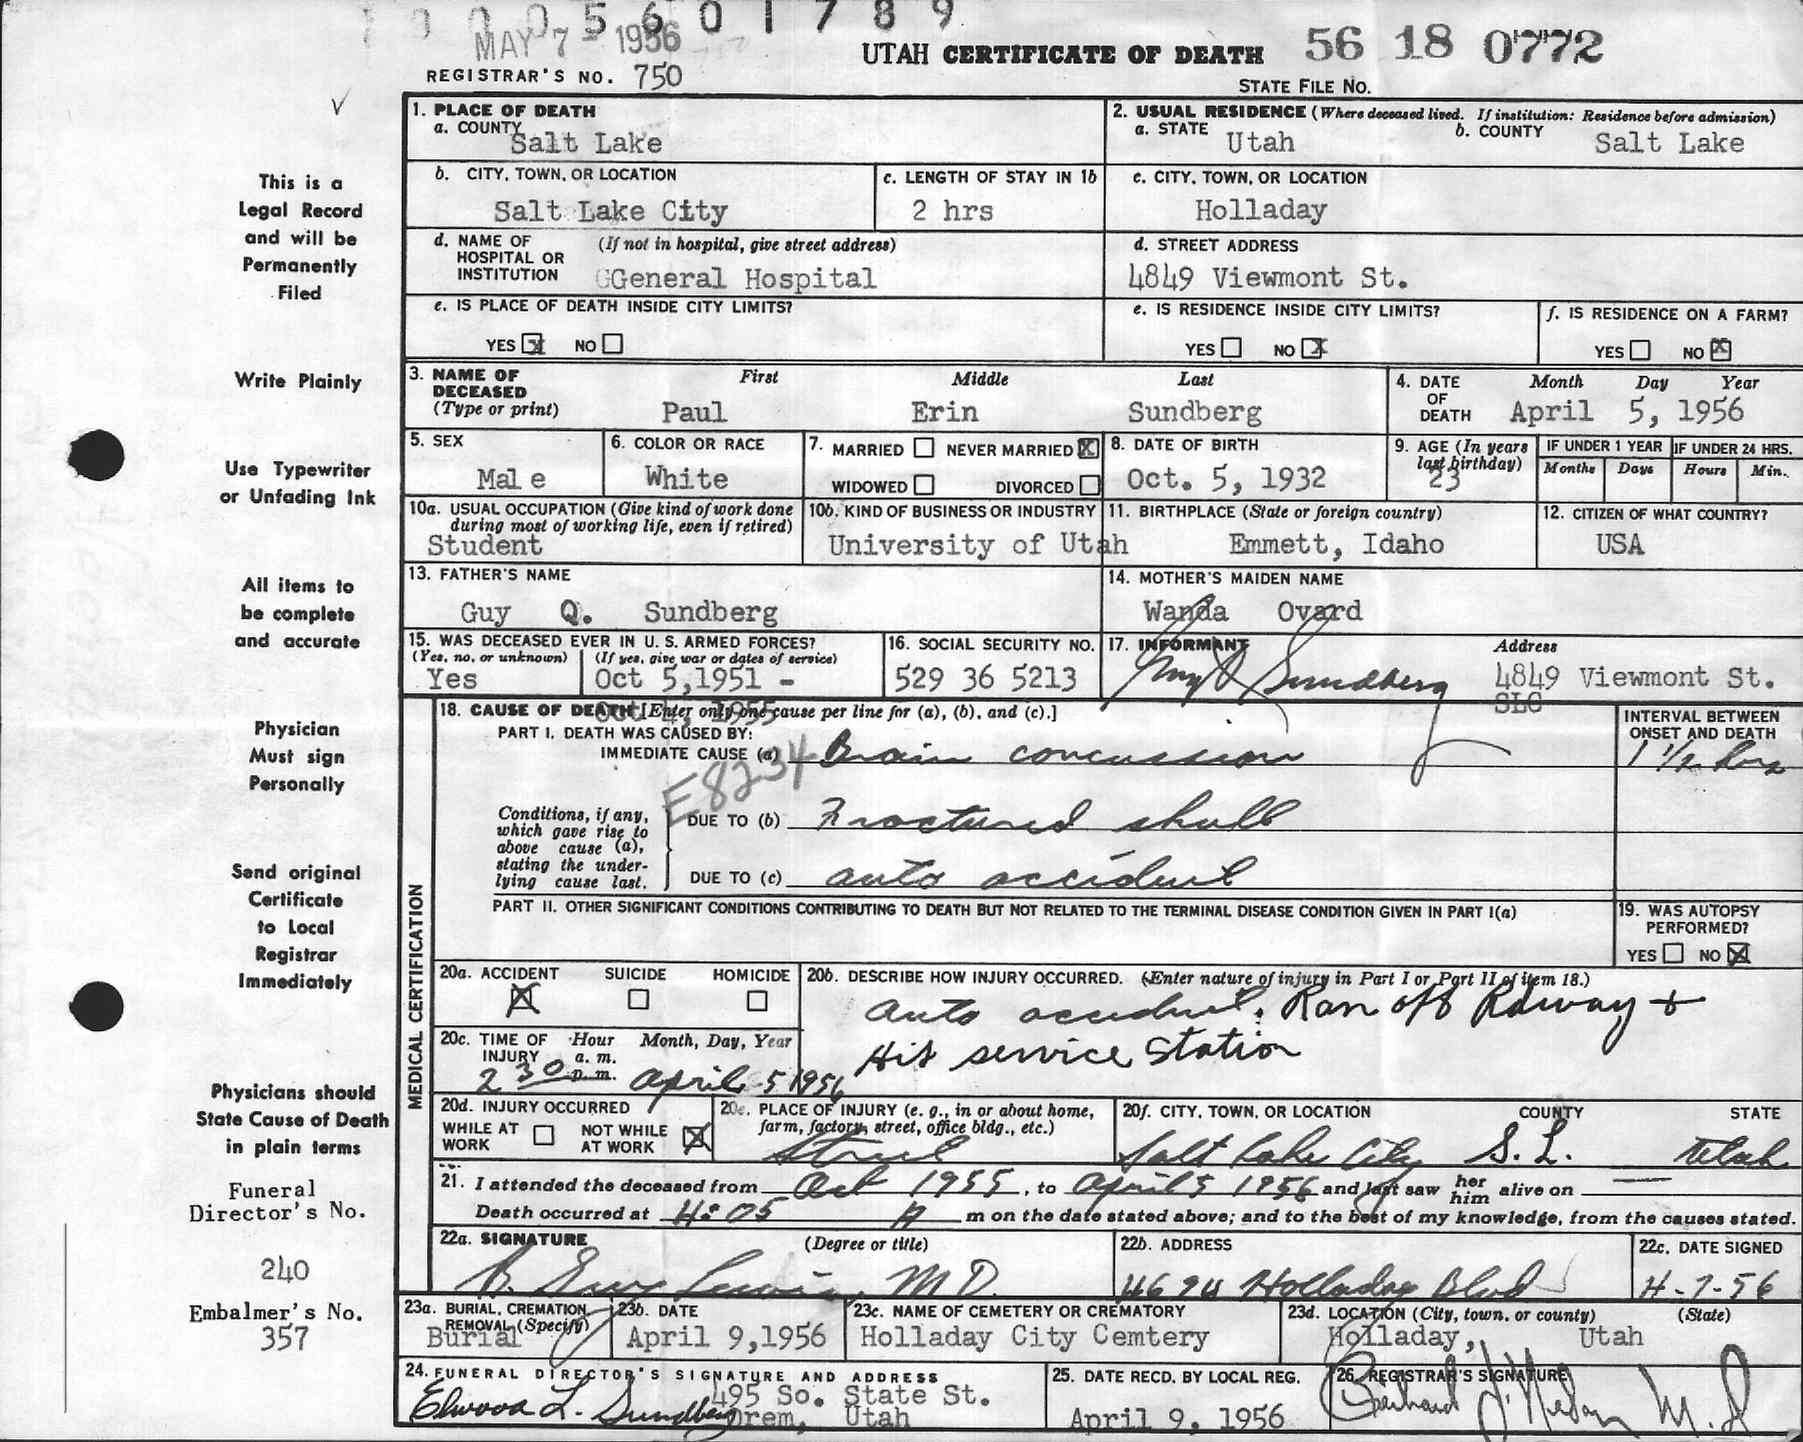 0 0 0 5 6 0 1 7 8 9
MAY 7 - 1956
UTAH CERTIFICATE OF DEATH 56 18 0772
REGISTRAR'S NO. 750
STATE FILE NO.
1. PLACE OF DEATH
a. COUNTY
Salt Lake
2. USUAL RESIDENCE (Where deceased lived. If institution: Residence before admission)
a. STATE Utah b. COUNTY Salt Lake
b. CITY, TOWN, OR LOCATION
Salt Lake City
c. LENGTH OF STAY IN 1b
2 hrs
c. CITY, TOWN, OR LOCATION
Holladay
d. NAME OF HOSPITAL OR INSTITUTION (If not in hospital, give street address)
GGeneral Hospital
d. STREET ADDRESS
4849 Viewmont St.
e. IS PLACE OF DEATH INSIDE CITY LIMITS?
YES X NO
e. IS RESIDENCE INSIDE CITY LIMITS?
YES NO X
f. IS RESIDENCE ON A FARM?
YES NO X
3. NAME OF DECEASED (Type or print)
First Middle Last
Paul Erin Sundberg
4. DATE OF DEATH Month Day Year
April 5, 1956
5. SEX
Male
6. COLOR OR RACE
White
7. MARRIED NEVER MARRIED X
WIDOWED DIVORCED
8. DATE OF BIRTH
Oct. 5, 1932
9. AGE (In years last birthday)
23
IF UNDER 1 YEAR IF UNDER 24 HRS.
Months Days Hours Min.
10a. USUAL OCCUPATION (Give kind of work done during most of working life, even if retired)
Student
10b. KIND OF BUSINESS OR INDUSTRY
University of Utah
11. BIRTHPLACE (State or foreign country)
Emmett, Idaho
12. CITIZEN OF WHAT COUNTRY?
USA
13. FATHER'S NAME
Guy Q. Sundberg
14. MOTHER'S MAIDEN NAME
Wanda Ovard
15. WAS DECEASED EVER IN U. S. ARMED FORCES?
(Yes, no, or unknown) (If yes, give war or dates of service)
Yes Oct 5,1951 -
Oct 4, 1955
16. SOCIAL SECURITY NO.
529 36 5213
17. INFORMANT Address
Guy Q Sundberg 4849 Viewmont St.
SLC
MEDICAL CERTIFICATION
18. CAUSE OF DEATH [Enter only one cause per line for (a), (b), and (c).]
PART I. DEATH WAS CAUSED BY:
INTERVAL BETWEEN ONSET AND DEATH
IMMEDIATE CAUSE (a) Brain concussion 1 1/2 hrs
E8234
Conditions, if any, which gave rise to above cause (a), stating the underlying cause last.
DUE TO (b) Fractured skull
DUE TO (c) auto accident
PART II. OTHER SIGNIFICANT CONDITIONS CONTRIBUTING TO DEATH BUT NOT RELATED TO THE TERMINAL DISEASE CONDITION GIVEN IN PART I(a)
19. WAS AUTOPSY PERFORMED?
YES NO X
20a. ACCIDENT SUICIDE HOMICIDE
X
20b. DESCRIBE HOW INJURY OCCURRED. (Enter nature of injury in Part I or Part II of item 18.)
auto accident. Ran off Rdway +
Hit service Station
20c. TIME OF INJURY Hour a. m. p. m. Month, Day, Year
2 30 April 5 1956
20d. INJURY OCCURRED
WHILE AT WORK NOT WHILE AT WORK X
20e. PLACE OF INJURY (e. g., in or about home, farm, factory, street, office bldg., etc.)
Street
20f. CITY, TOWN, OR LOCATION COUNTY STATE
Salt Lake City S. L. Utah
21. I attended the deceased from Oct 1955, to April 5 1956 and last saw her him alive on
Death occurred at 4:05 A m on the date stated above; and to the best of my knowledge, from the causes stated.
22a. SIGNATURE (Degree or title)
M D.
22b. ADDRESS
4694 Holladay Blvd
22c. DATE SIGNED
4-7-56
23a. BURIAL, CREMATION, REMOVAL (Specify)
Burial
23b. DATE
April 9,1956
23c. NAME OF CEMETERY OR CREMATORY
Holladay City Cemtery
23d. LOCATION (City, town, or county) (State)
Holladay, Utah
24. FUNERAL DIRECTOR'S SIGNATURE AND ADDRESS
Elwood L. Sundberg 495 So. State St.
Orem, Utah
25. DATE RECD. BY LOCAL REG.
April 9, 1956
26. REGISTRAR'S SIGNATURE
M. D
This is a
Legal Record
and will be
Permanently
Filed
Write Plainly
Use Typewriter
or Unfading Ink
All items to
be complete
and accurate
Physician
Must sign
Personally
Send original
Certificate
to Local
Registrar
Immediately
Physicians should
State Cause of Death
in plain terms
Funeral
Director's No.
240
Embalmer's No.
357